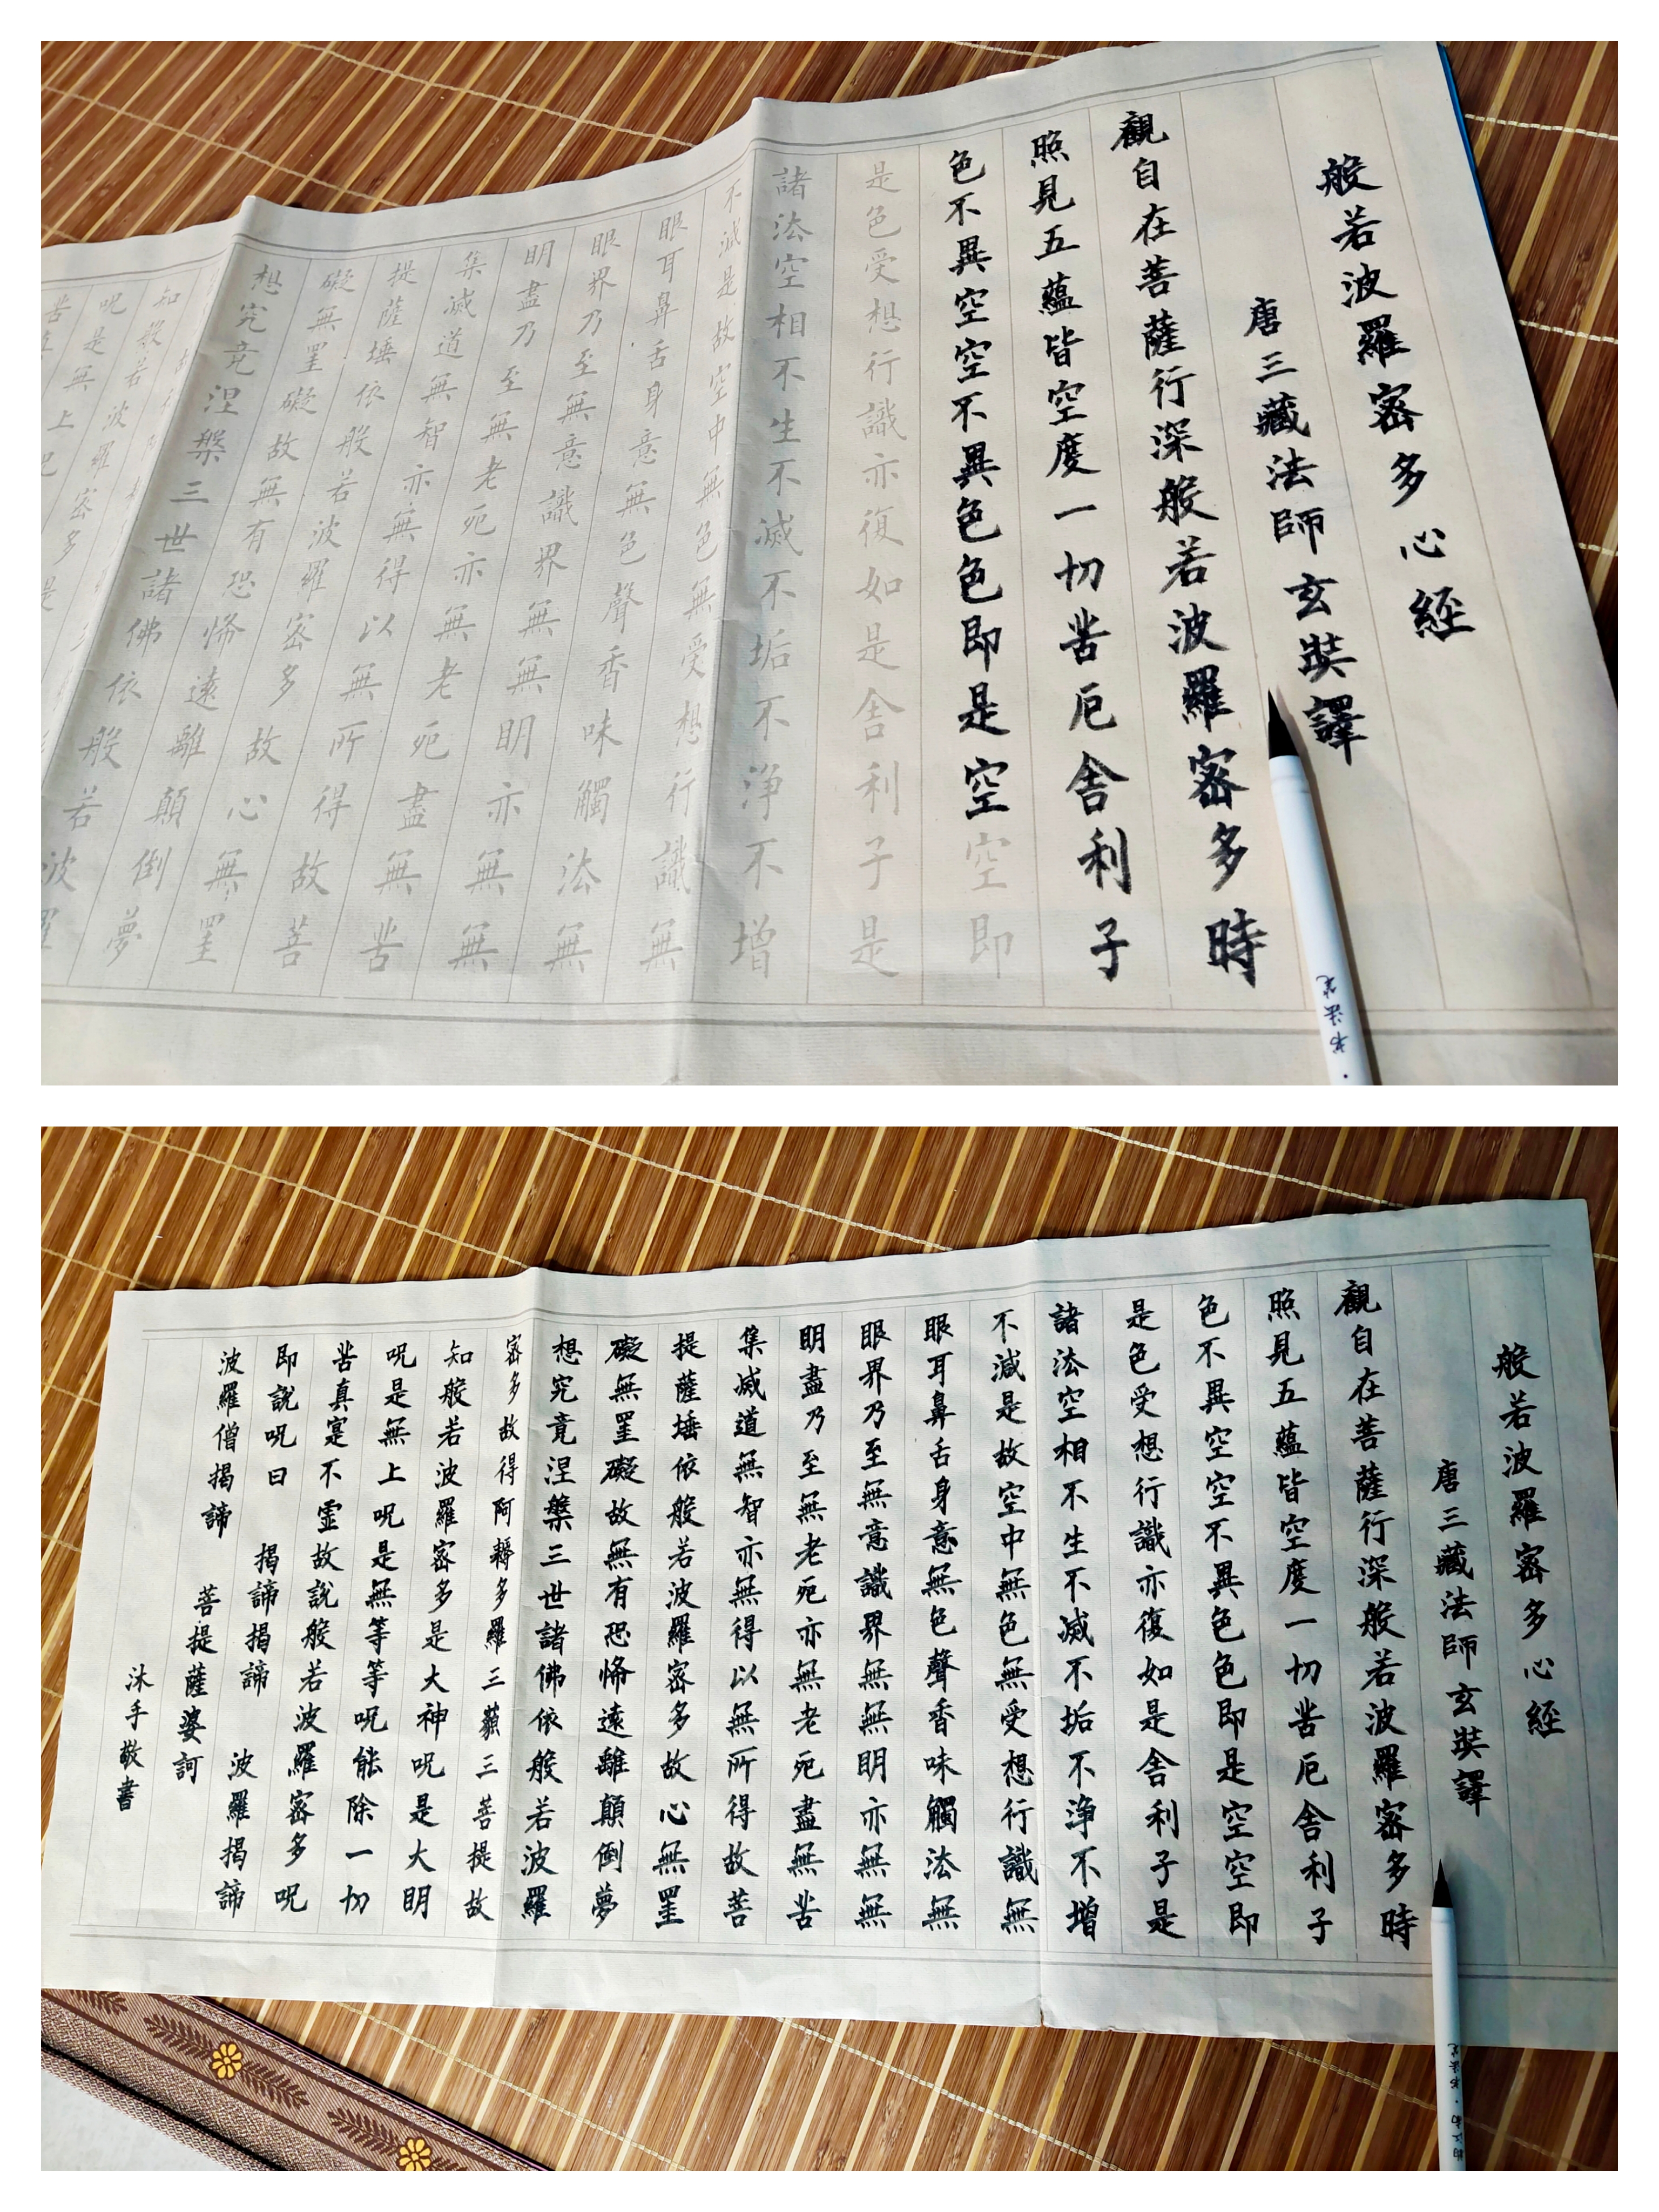 般若波羅密多心經
唐三藏法師玄奘譯
觀自在菩薩行深般若波羅密多時
照見五蘊皆空度一切苦厄舍利子
色不異空空不異色色即是空空即
是色受想行識亦復如是舍利子是
諸法空相不生不滅不垢不淨不增
不減是故空中無色無受想行識無
眼耳鼻舌身意無色聲香味觸法無
眼界乃至無意識界無無明亦無無
明盡乃至無老死亦無老死盡無苦
集滅道無智亦無得以無所得故菩
提薩埵依般若波羅密多故心無罣
礙無罣礙故無有恐怖遠離顛倒夢
想究竟涅槃三世諸佛依般若波羅
知般若
呪是無上
書法笔
般若波羅密多心經
唐三藏法師玄奘譯
觀自在菩薩行深般若波羅密多時
照見五蘊皆空度一切苦厄舍利子
色不異空空不異色色即是空空即
是色受想行識亦復如是舍利子是
諸法空相不生不滅不垢不淨不增
不減是故空中無色無受想行識無
眼耳鼻舌身意無色聲香味觸法無
眼界乃至無意識界無無明亦無無
明盡乃至無老死亦無老死盡無苦
集滅道無智亦無得以無所得故菩
提薩埵依般若波羅密多故心無罣
礙無罣礙故無有恐怖遠離顛倒夢
想究竟涅槃三世諸佛依般若波羅
密多故得阿耨多羅三藐三菩提故
知般若波羅密多是大神呪是大明
呪是無上呪是無等等呪能除一切
苦真寔不虛故說般若波羅密多呪
即說呪曰 揭諦揭諦 波羅揭諦
波羅僧揭諦 菩提薩婆訶
沐手敬書